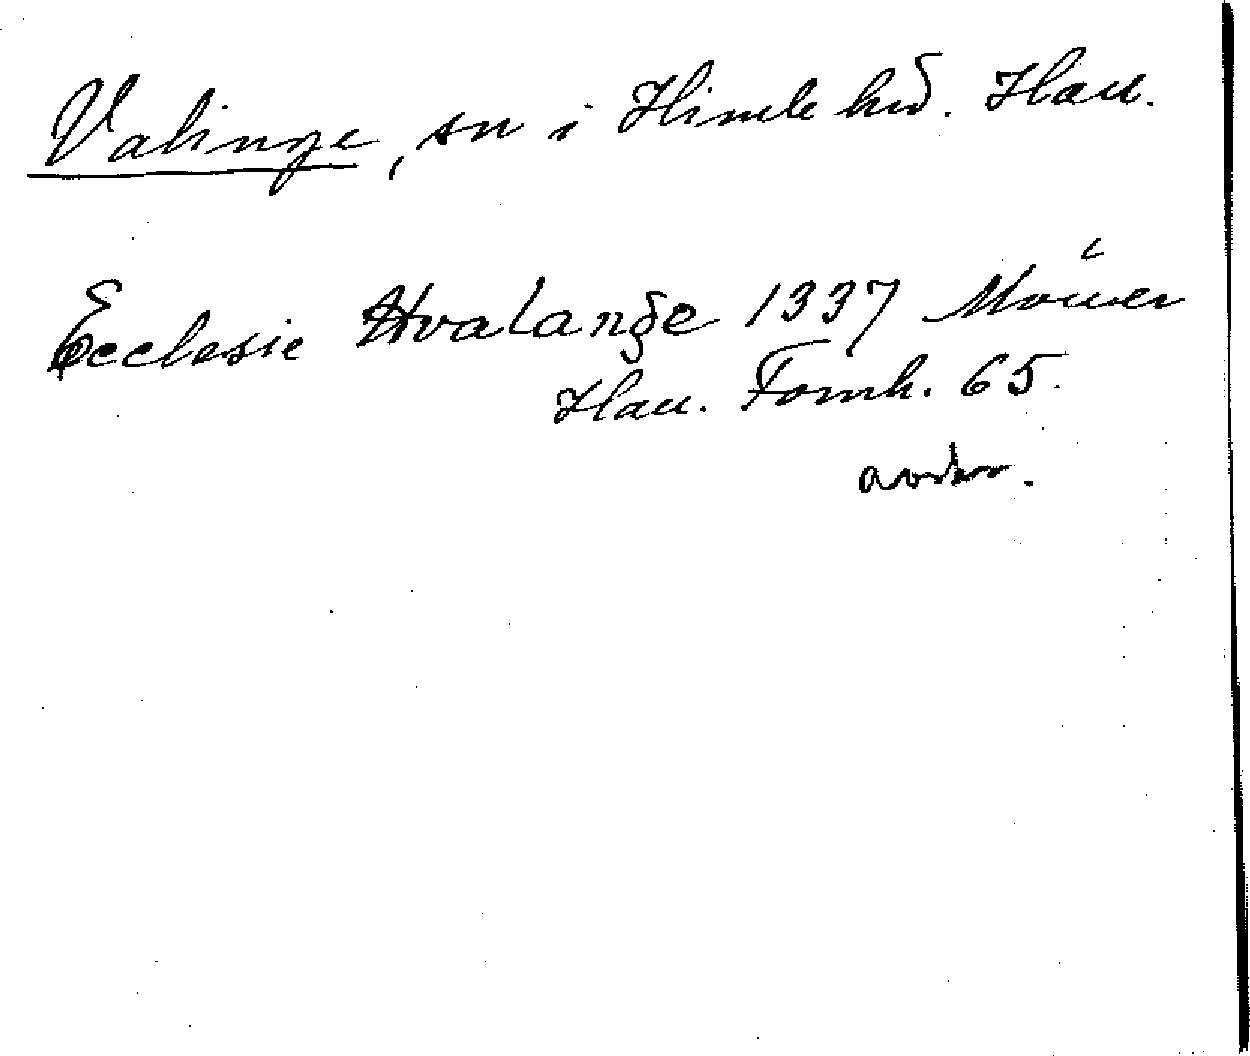 Valinge, sn i Himle hd. Hall.
Ecclesie Hvalange 1337
Hall. Fornh. 65.